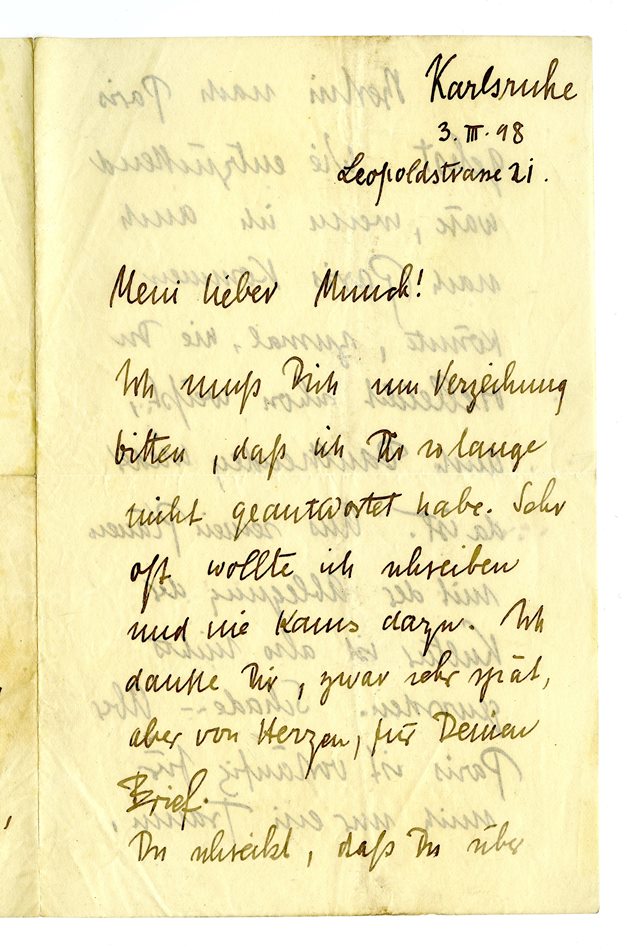 Karlsruhe
3. III. 98
Leopoldstrasse 21.
Mein lieber Munch!
Ich muß Dich um Verzeihung
bitten, daß ich Dir so lange
nicht geantwortet habe. Sehr
oft wollte ich schreiben
und nie kams dazu. Ich
danke Dir, zwar sehr spät,
aber von Herzen, für Deinen
Brief.
Du schreibst, daß Du über